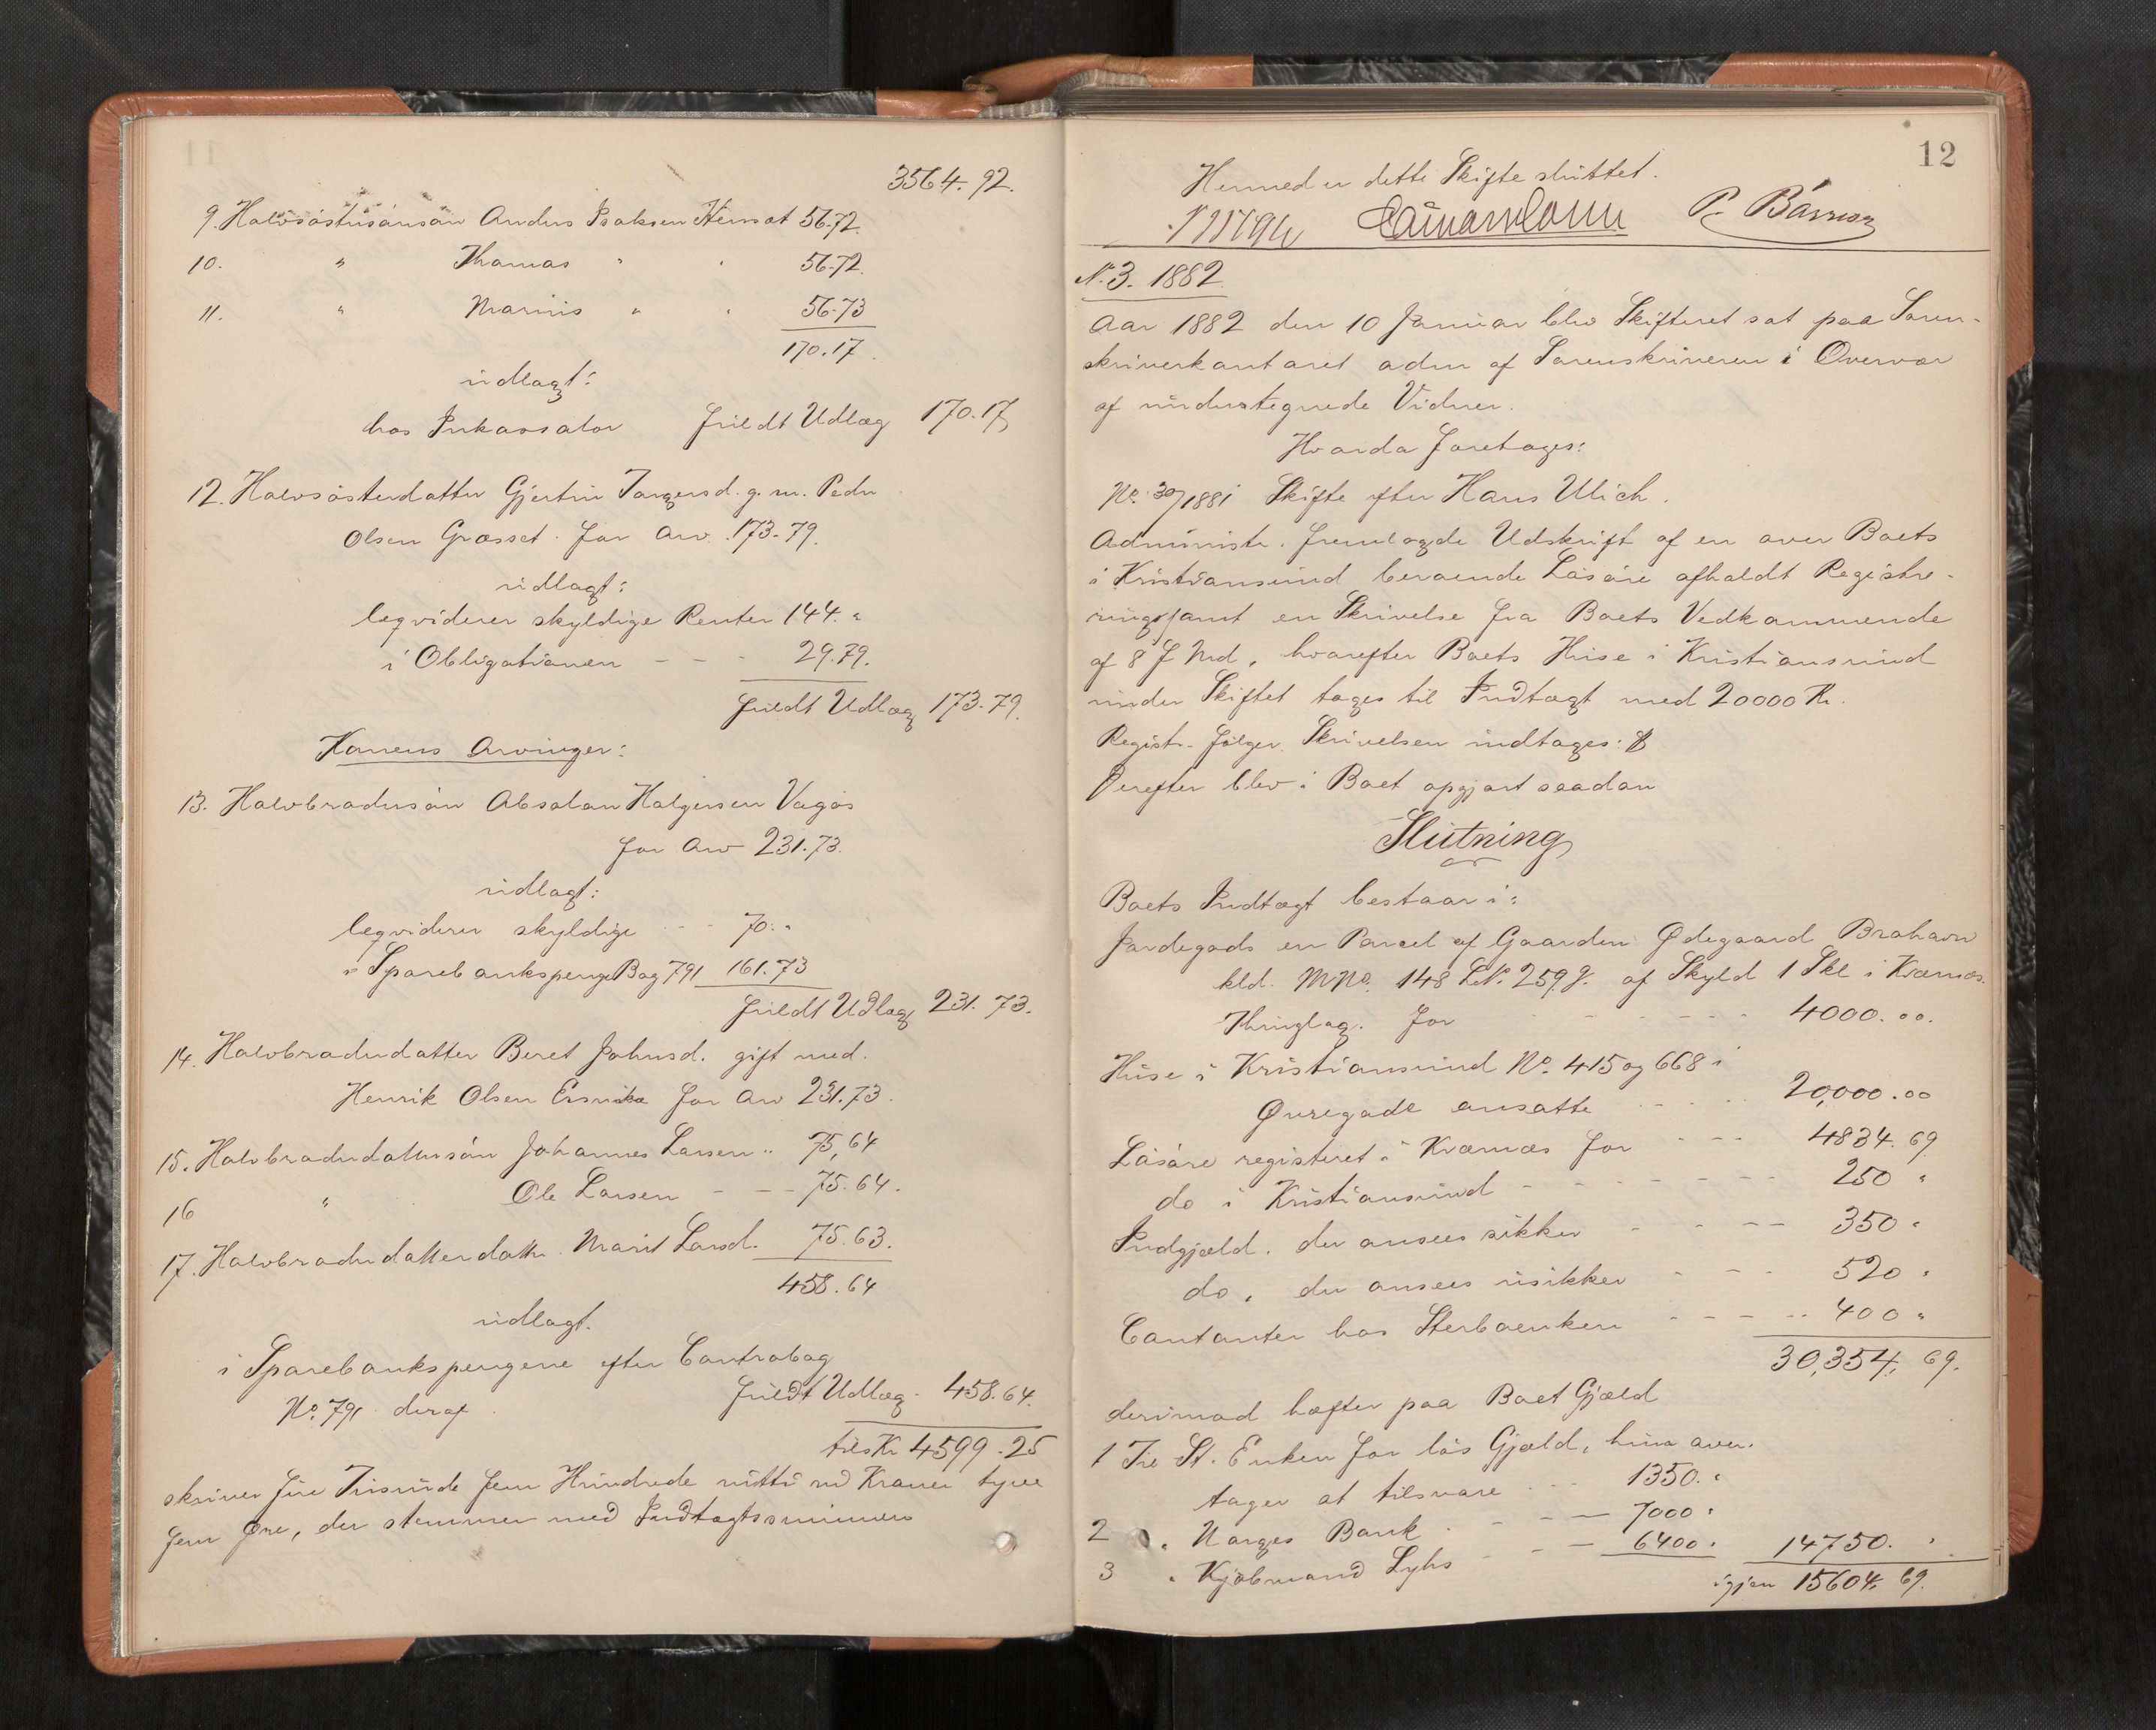 3564.92.
9. Halvsøstersønsøn Anders Isaksen Hensøt 56.72.
10. " Thomas " " 56.72.
11. " Marius " " 56.73
170.17.
udlagt:
hos Inkassator fuldt Udlæg 170.17
12. Halvsøsterdatter Gjertru Torgersd. g. m. Peder
Olsen Grøsset. for Arv 173.79.
udlagt:
leqviderer skyldige Renter 144. "
i Obligationen - - - 29.79.
fuldt Udlæg 173.79.
Konens Arvinger:
13. Halvbrodersøn Absalon Halgersen Vagøs
for Arv 231.73.
udlagt:
leqviderer skyldige - - 70. "
i SparebankspengeBog 791 161.73
fuldt Udlæg 231.73.
14. Halvbroderdatter Beret Johnsd. gift med.
Henrik Olsen for Arv 231.73.
15. Halvbroderdattersøn Johannes Larsen " 75,64
16 " Ole Larsen - - - 75.64.
17. Halvbroderdatterdatter Marit Larsd. 75.63.
458.64
udlagt.
i Sparebankspengene efter Contrabog
No. 791 deraf fuldt Udlæg. 458.64.
tils Kr 4599.25
skriver fire Tusinde fem Hundrede nitti ni Kroner tyve
fem Øre, der stemmer med Indtægtssummen
12
Hermed er dette Skifte sluttet.
P.
N. 3. 1882.
Aar 1882 den 10 Januar blev Skifteret sat paa Soren-
skriverkontoret adm af Sorenskriveren i Overvær
af undertegnede Vidner.
Hvorda foretages:
No. 30/1881 Skifte efter Hans Ulich.
Administr. fremlagde Udskrift af en over Boets
i Kristiansund beroende Løsøre afholdt Registre-
rings samt en Skrivelse fra Boets Vedkommende
af 8 f Md, hvorefter Boets Huse i Kristiansund
under Skiftet tages til Indtægt med 20000 Kr.
Registr. følger. Skrivelsen indtages:
Derefter blev i Boet opgjort saadan
Slutning
Boets Indtægt bestaar i:
Jordegods en Parcel af Gaarden Ødegaard Brohavn
kld. MNo. 148 LN. 259g. af Skyld 1 Skl i Kværnæs
Thinglag. for - - - - - - 4000.00.
Huse i Kristiansund No. 415 og 668 i
Øvregade ansatte - - - - 20,000.00
Løsøre registeret i Kværnæs for - - - 4834.69
do i Kristiansund - - - - - - - 250 "
Indgjæld. der ansees sikker - - - - 350 "
do, der ansees usikker - - - 520 "
Contanter hos Sterboenken - - - - 400 "
30,354, 69.
derimod hæfter paa Boet Gjæld
1 Til St. Enken for løs Gjæld, hun over.
tager at tilsvare - - - 1350. "
2 " Norges Bank - - - - 7000 "
3 " Kjøbmand Lyhs - - - 6400 " 14750. "
igjen 15604, 69.